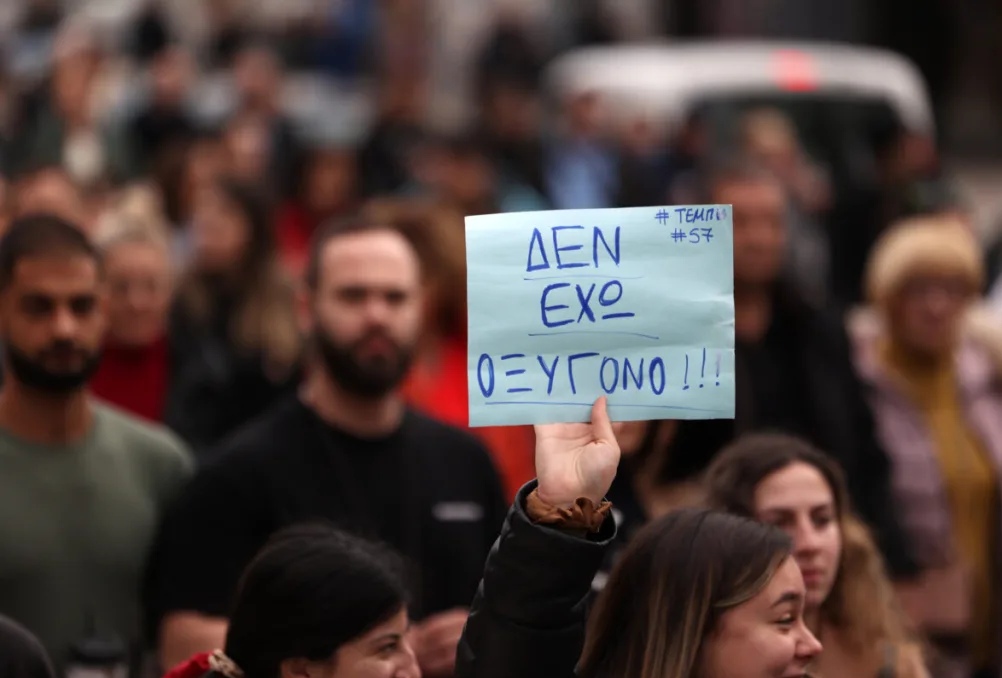 # ΤΕΜΠΗ
#57
ΔΕΝ
ΕΧΩ
ΟΞΥΓΟΝΟ !!!